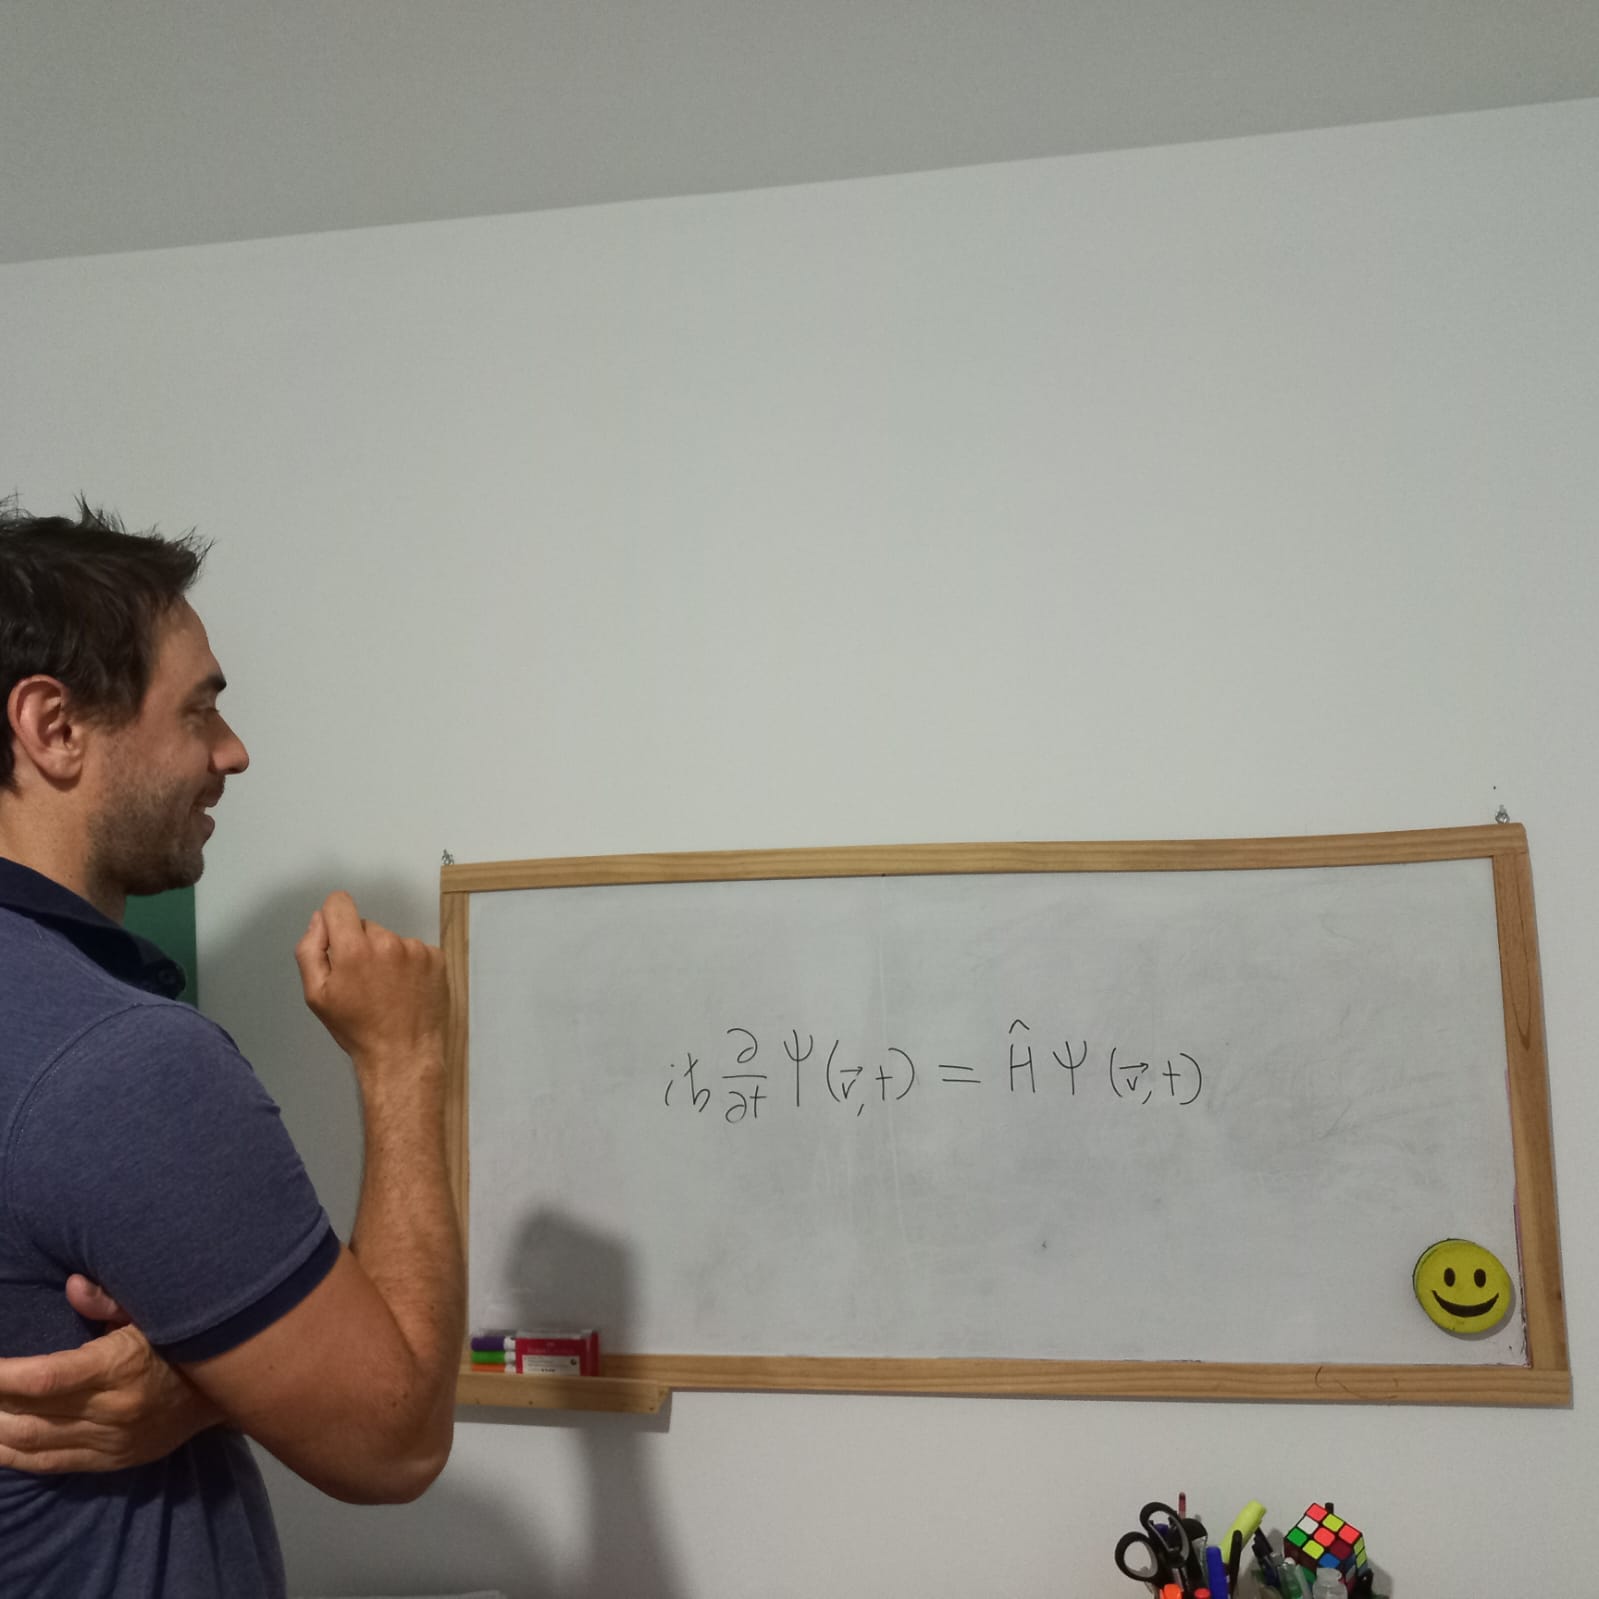 iℏ ∂/∂t Ψ(r⃗, t) = Ĥ Ψ(r⃗, t)